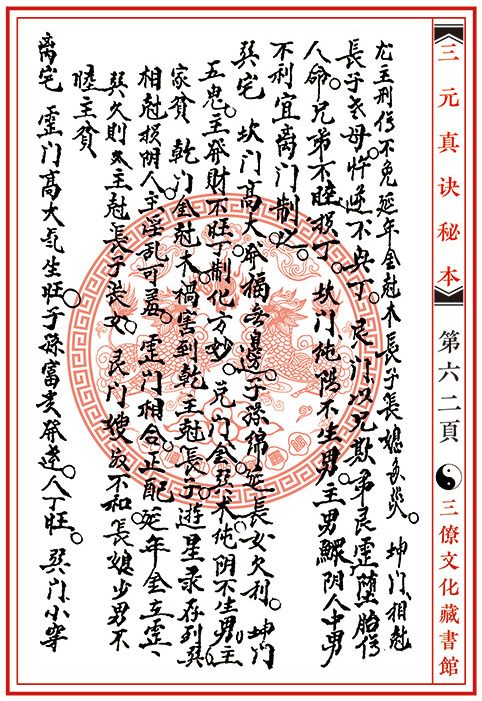 三元真诀秘本
第六二頁
三僚文化藏書館
尤主刑傷不免延年金尅木長子長媳多災。坤门相尅
長子老母忤逆不興丁。艮门以兄欺弟艮霊堕胎傷
人命。兄弟不睦损丁。坎门純陽不生男。主男鰥阴人中男
不利宜离门制之。
巽宅 坎门高大发福無邊。子孫绵延長女欠利。坤门
五鬼。主発財不旺丁制化方妙。兑门金巽木。純阴不生男。主
家貧 乾门金尅木禍害到乾主尅長子。遊星录存到巽
相尅损阴人主淫乱可羞。霊门相合正配。延年金立霊、
巽久則又主尅長子長女。艮门嫂叔不和長媳少男不
睦主貧
离宅 霊门高大气生旺。子孫富贵発達。人丁旺。巽门小